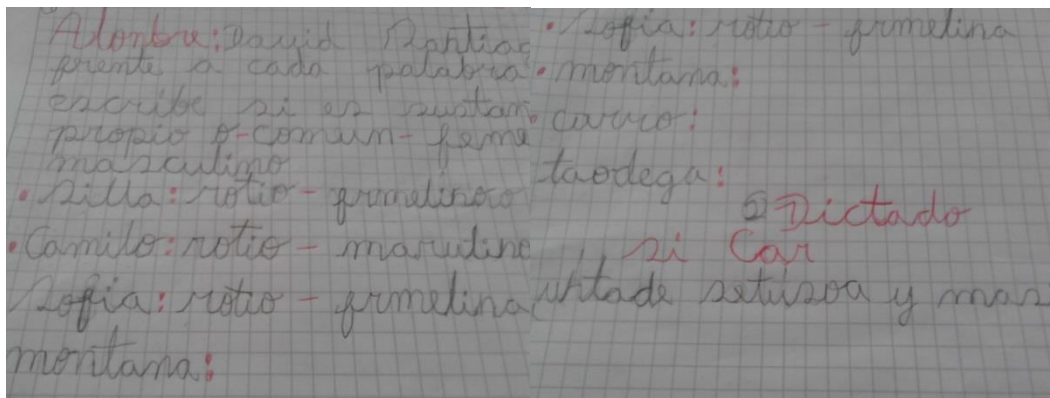 Nombre: David Santiag
frente a cada palabra
escribe si es sustan
propio o-comun-feme
masculino
• silla: rotio - frmelinoro
• Camilo: rotio - marulino
Sofia: rotio - frmelina
montana:
• Sofia: rotio - frmelina
• montana:
• carro:
taodega:
② Dictado
si Car
untade setusoa y mas